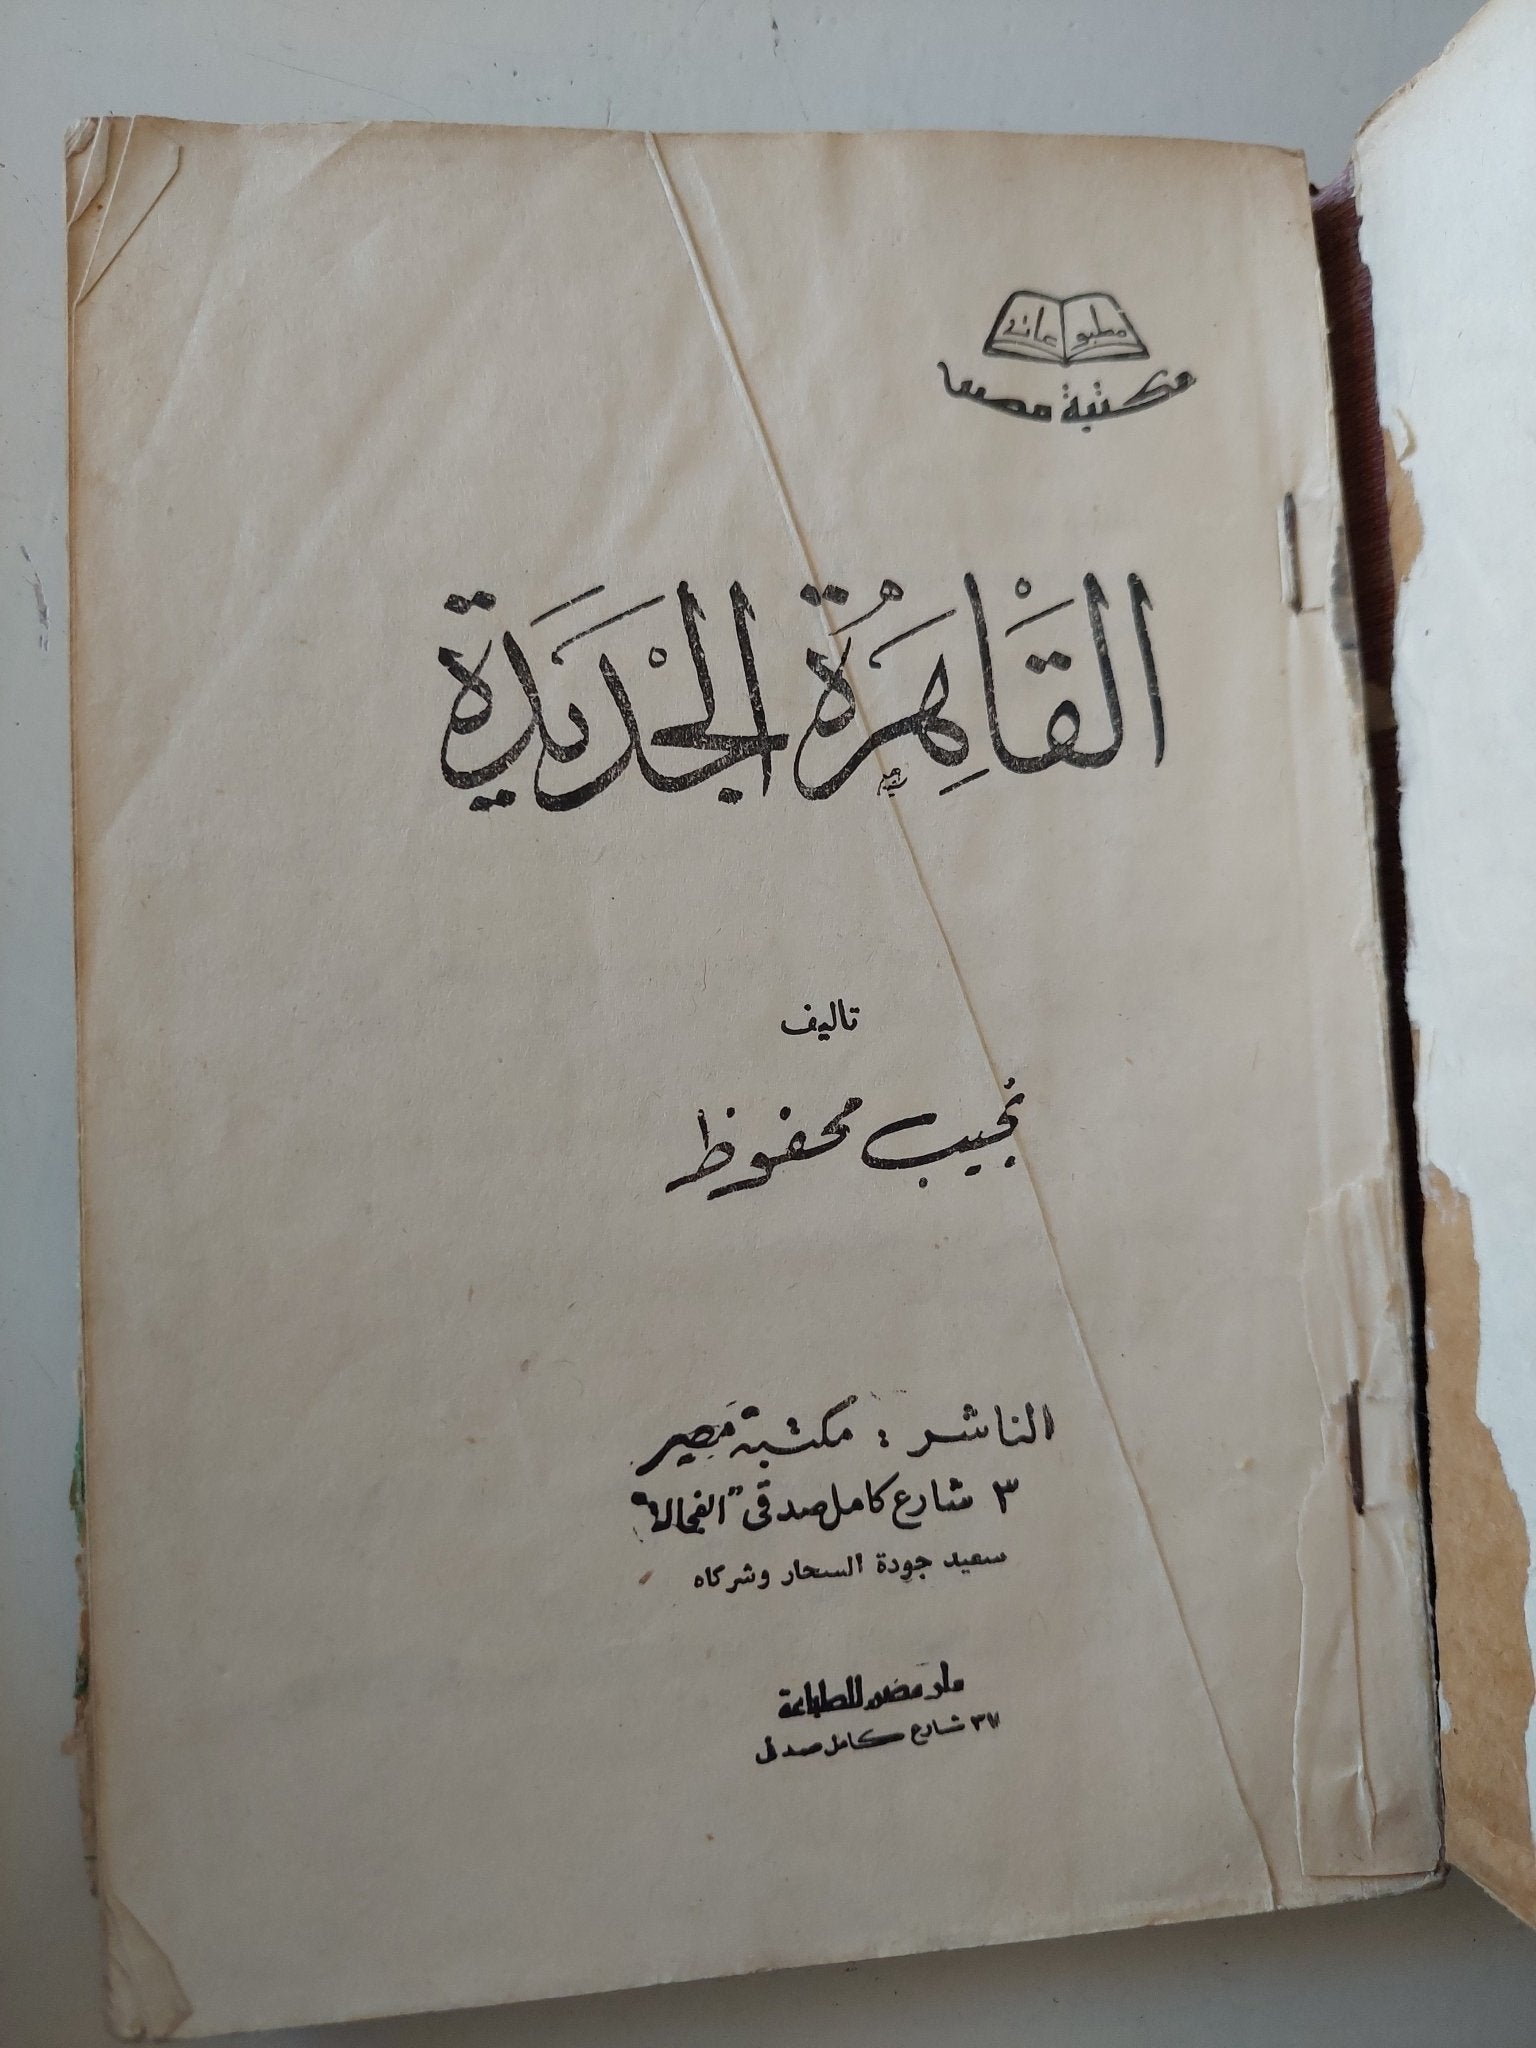 مطبوعات
مكتبة مصر
القَاهِرَةُ الجْدَيدَة
تاليف
نجيب محفوظ
الناشر : مكتبة مصر
٣ شارع كامل صدقى "الفجالة"
سعيد جودة السحار وشركاه
دار مصر للطباعة
٣٧ شارع كامل صدقى